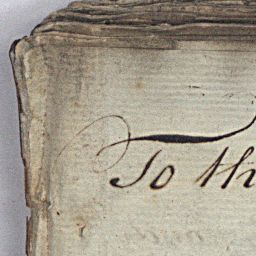 To th